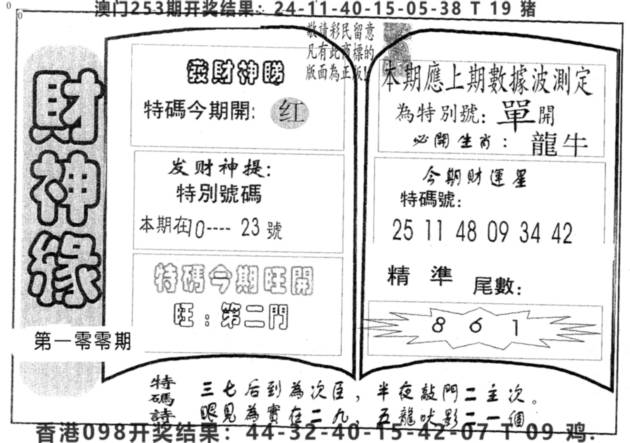 澳门253期开奖结果：24-11-40-15-05-38 T 19 猪
敬请彩民留意
凡有此商標的
版面為正版!
財神緣
第一零零期
發財神勝
特碼今期開: 红
发财神提:
特別號碼
本期在0---- 23 號
特碼今期旺開
旺：第二門
本期應上期數據波測定
為特別號：單開
必開生肖：龍牛
今期財運星
特碼號:
25 11 48 09 34 42
精準 尾數:
8 6 1
特碼詩
三七后到為次臣，半夜敲門二主次。
眼見為實在二九，五龍吠影二一個
香港098开奖结果：44-32-40-15-42-07 T 09 鸡.